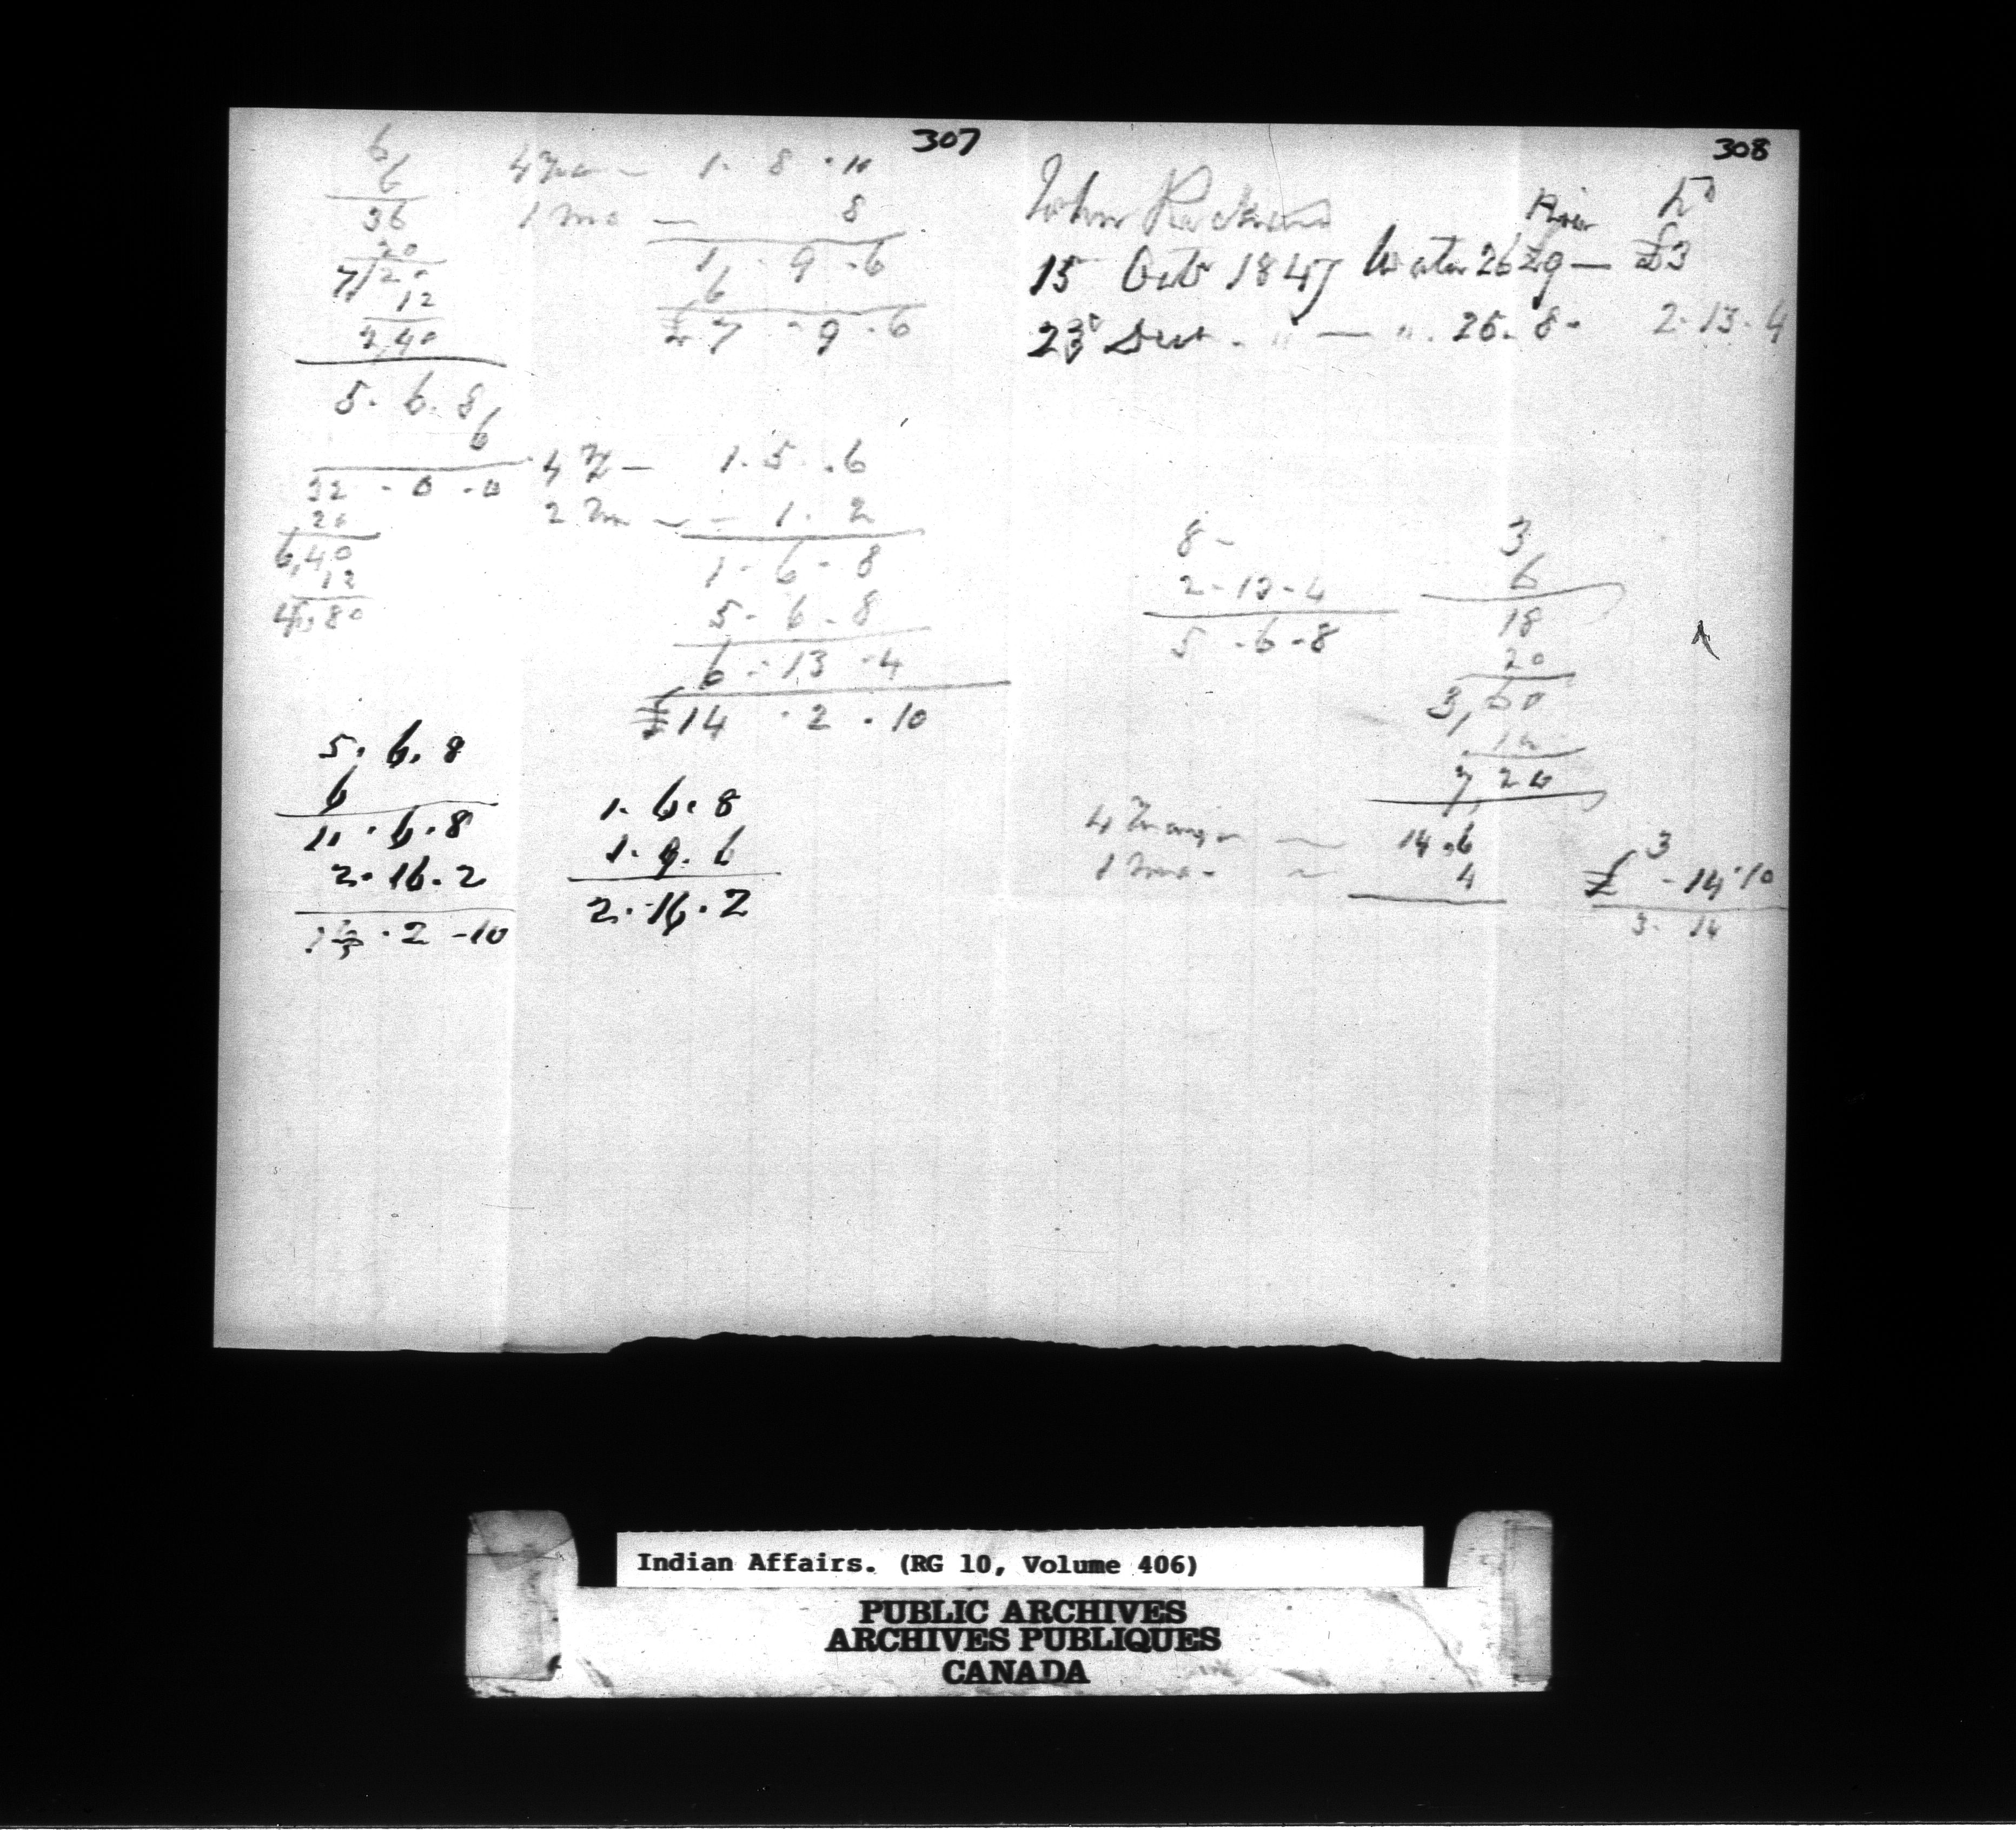 307
6/
6
36
20
7/20
12
2,40
5. 6. 8/
6
32 - 0 - 0
20
6,40
12
4,80
4 - 1. 8 . 10
1 mo - 8
1 . 9 . 6
6
£ 7 - 9 . 6
4 - 1. 5 . 6
2 - 1. 2
1 - 6 - 8
5 - 6 . 8
6 - 13 - 4
£14 . 2 . 10
5. 6. 8
6
11 . 6 . 8
2. 16. 2
. 2 - 10
1. 6. 8
1. 9. 6
2. 16. 2
308
John
15 Octr 1847 Water 26 £9 — £3
23d Decr. " — ". 25. 8 - 2. 13. 4
8 -
2 - 13 - 4
5 - 6 - 8
3/
6
18
20
3,60
12
7,20
4 — 14.6
1 mo. ~ 4
3
£ - 14 . 10
3. 14
Indian Affairs. (RG 10, Volume 406)
PUBLIC ARCHIVES
ARCHIVES PUBLIQUES
CANADA